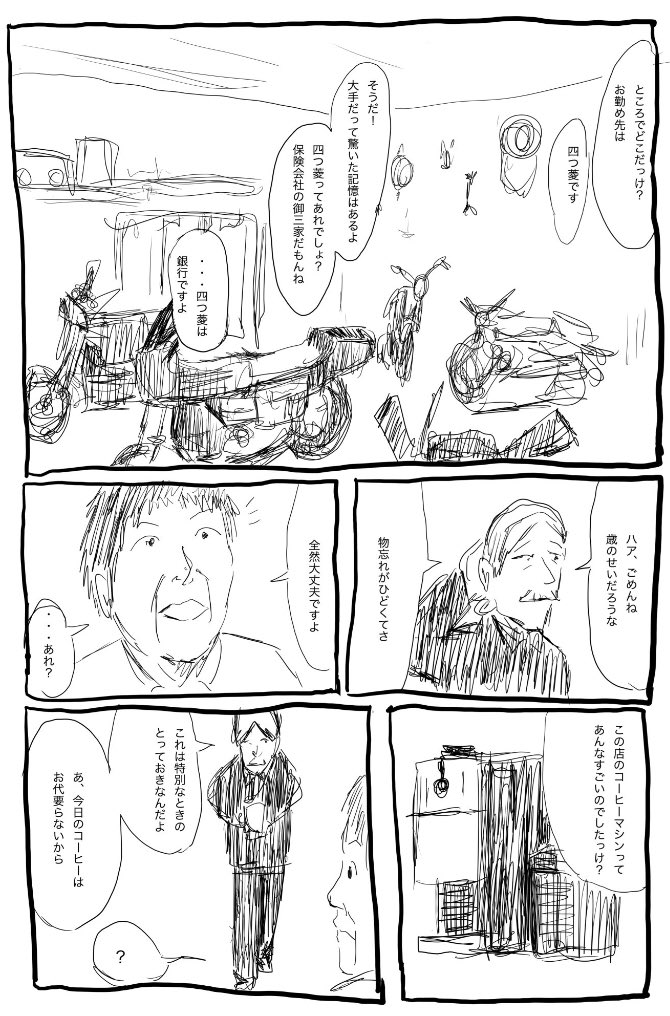 ところでどこだっけ?
お勤め先は
四つ菱です
そうだ!
大手だって驚いた記憶はあるよ
四つ菱ってあれでしょ?
保険会社の御三家だもんね
・・・四つ菱は
銀行ですよ
ハア、ごめんね
歳のせいだろうな
物忘れがひどくてさ
全然大丈夫ですよ
・・・あれ?
この店のコーヒーマシンって
あんなすごいのでしたっけ?
これは特別なときの
とっておきなんだよ
あ、今日のコーヒーは
お代要らないから
?